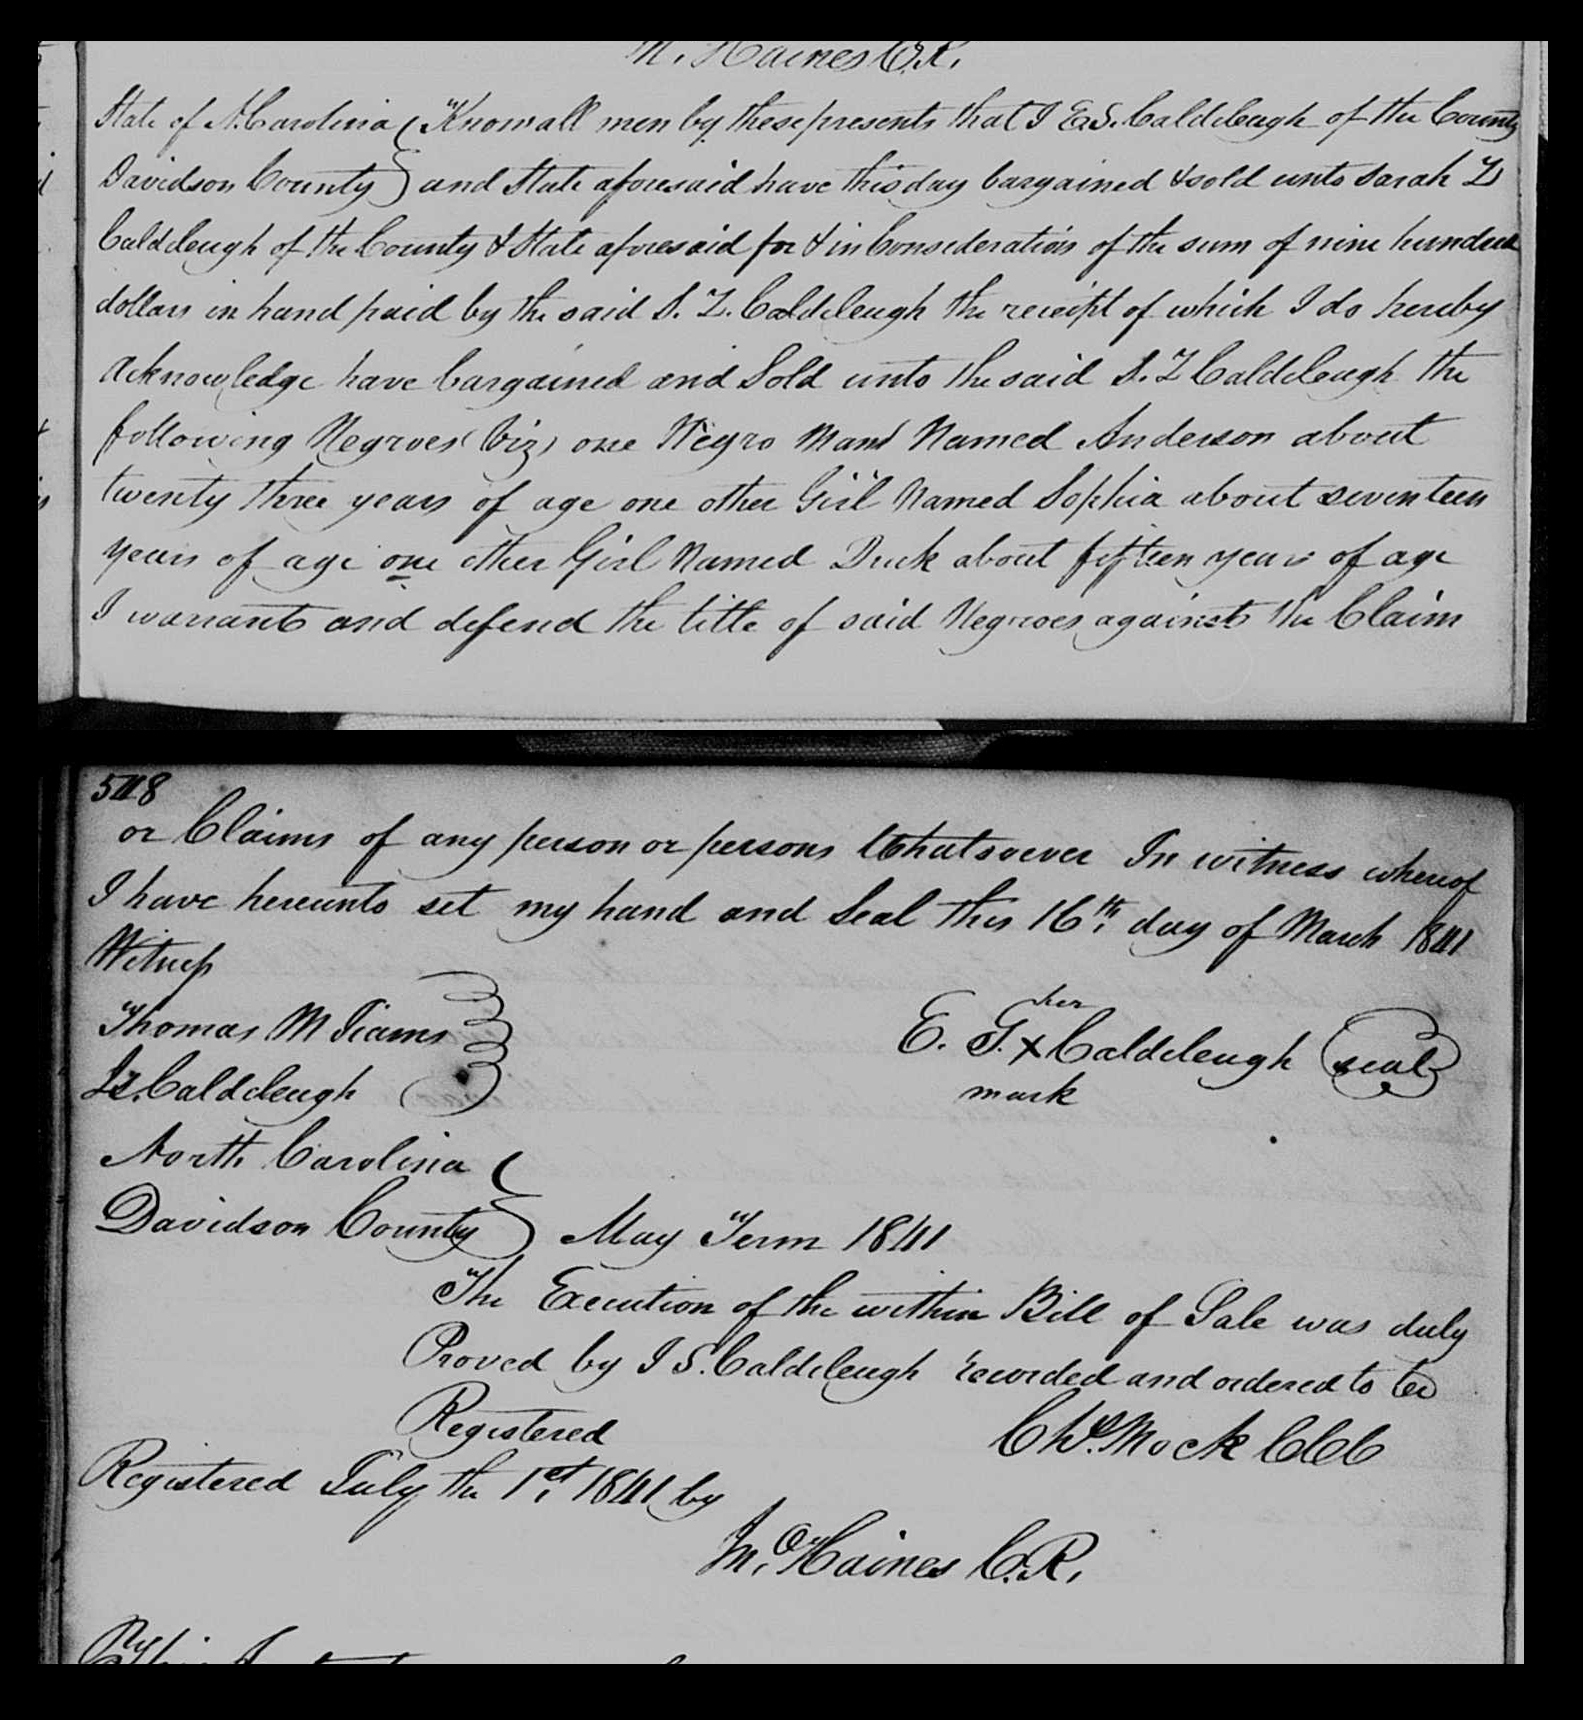 M. Haines C.R.
State of N. Carolina Know all men by these presents that I E. S. Caldcleugh of the County
Davidson County and State aforesaid have this day bargained & sold unto Sarah Z
Caldcleugh of the County & State aforesaid for & in Consideration of the sum of nine hundred
dollars in hand paid by the said S. Z. Caldcleugh the receipt of which I do hereby
acknowledge have bargained and Sold unto the said S. Z Caldcleugh the
following Negroes (viz) one Negro Man Named Anderson about
twenty three years of age one other Girl Named Sophia about seventeen
years of age one other Girl Named Duck about fifteen years of age
I warrant and defend the title of said Negroes against the Claim
548
or Claims of any person or persons Whatsoever In witness whereof
I have hereunto set my hand and Seal this 16th, day of March 1841
Witness
her
Thomas M Tiams E. S. X Caldcleugh seal
Caldcleugh mark
North Carolina
Davidson County May Term 1841
The Execution of the within Bill of Sale was duly
Proved by I S. Caldcleugh recorded and ordered to be
Registered Chs. Mock CCC
Registered July the 1st, 1841 by
Jno. Haines C.R.